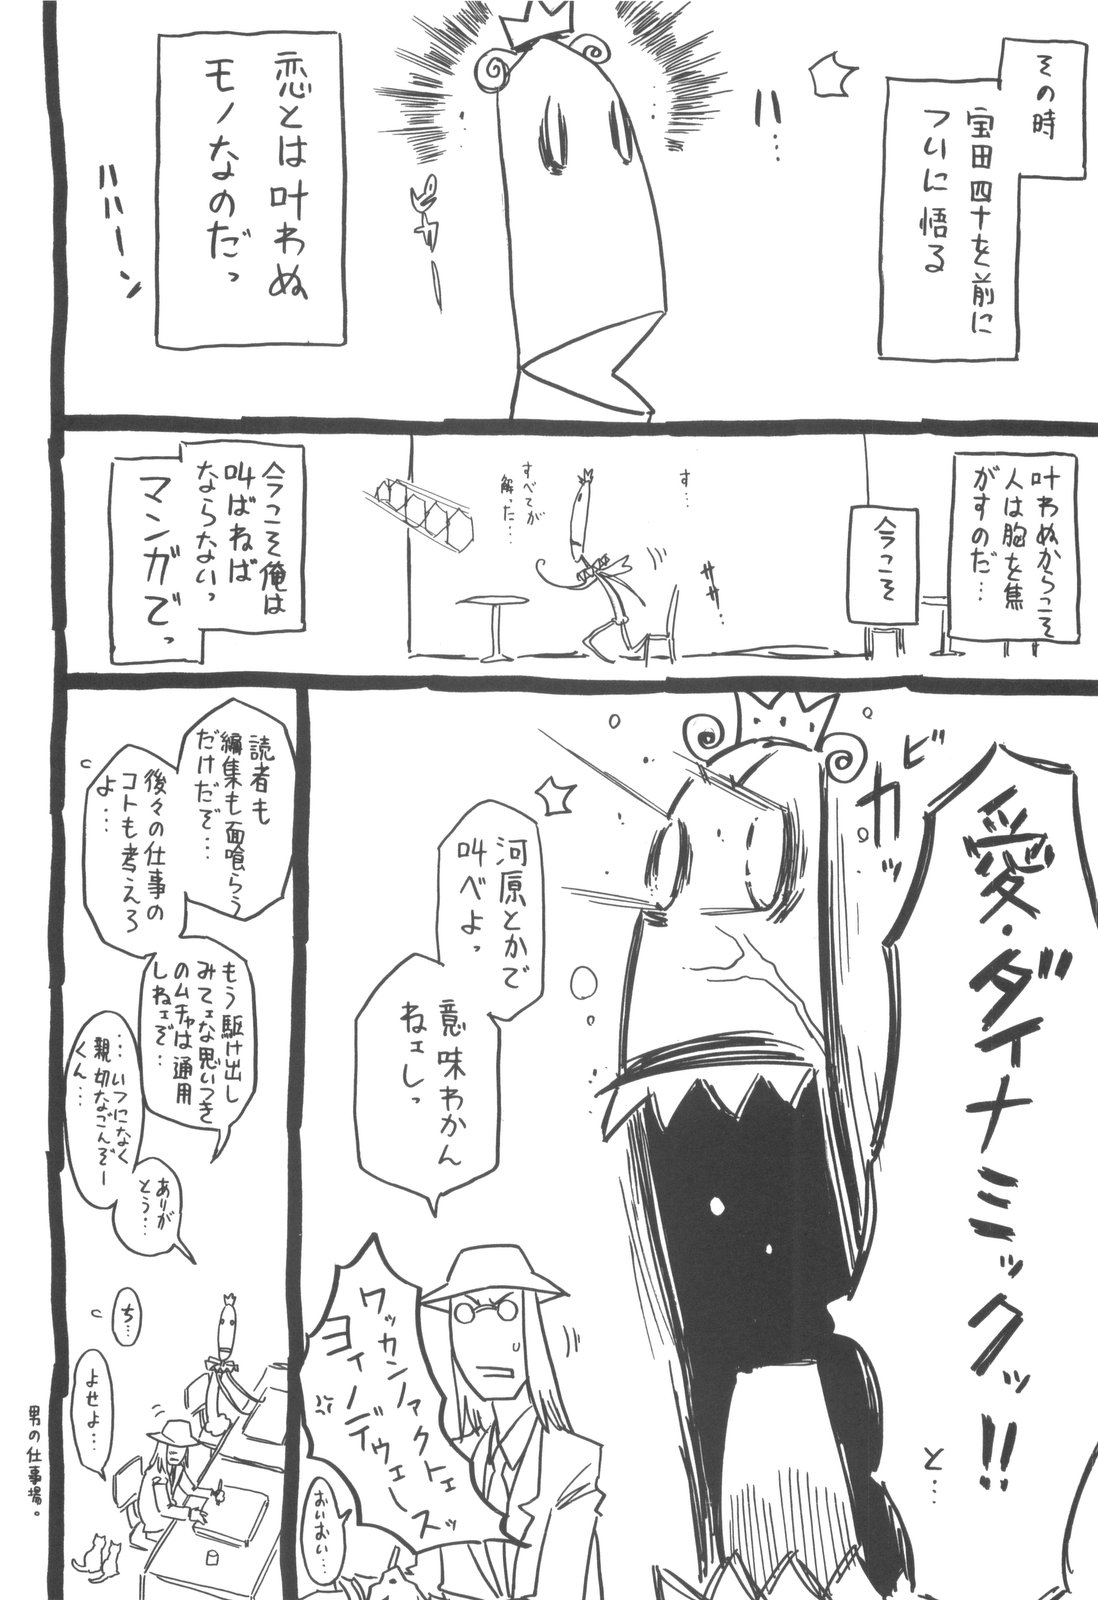 その時
宝田四十を前に
ついに悟る
ハ…
恋とは叶わぬ
モノなのだっ
ハハーン
叶わぬからこそ
人は胸を焦
がすのだ…
今こそ
す…
ササ…
すべてが
解った…
今こそ俺は
叫ばねば
ならないっ
マンガでっ
ビカッ
愛・ダイナミックッ!!
と…
河原とかで
叫べよっ
意味わかん
ねェしっ
ワッカンノァクトェ
ヨィノデウェースッ
おいおい…
読者も
編集も面喰らう
だけだぞ…
後々の仕事の
コトも考えろ
よ…
もう駆け出し
みてェな思いつき
のムチャは通用
しねェぞ…
…いつになく
親切なごんぞー
くん…
ありが
とう…
ち…
よせよ…
男の仕事場。